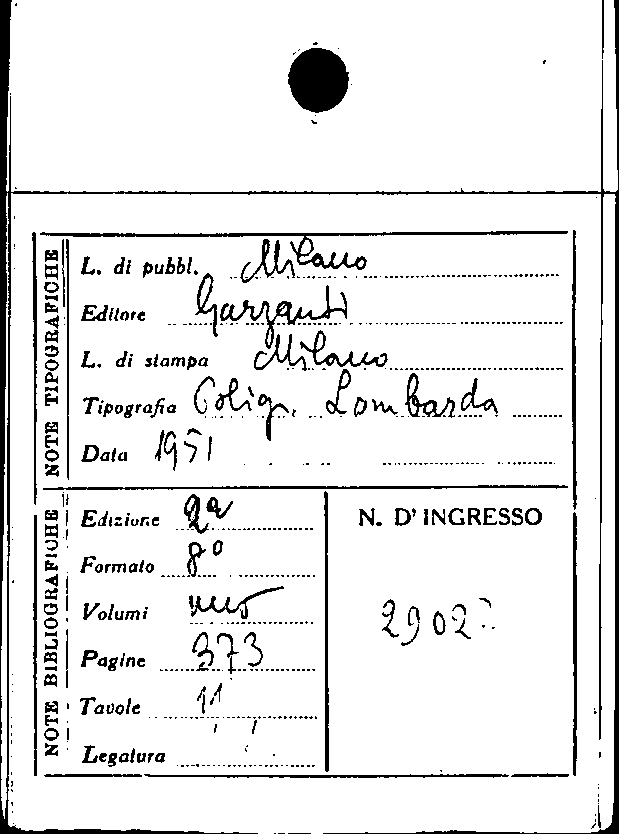 NOTE TIPOGRAFICHE
L. di pubbl. Milano
Editore Garzanti
L. di stampa Milano
Tipografia Polig. Lombarda
Data 1951
NOTE BIBLIOGRAFICHE
Edizione 2a
Formato 8o
Volumi uno
Pagine 373
Tavole 11
Legatura
N. D'INGRESSO
2902